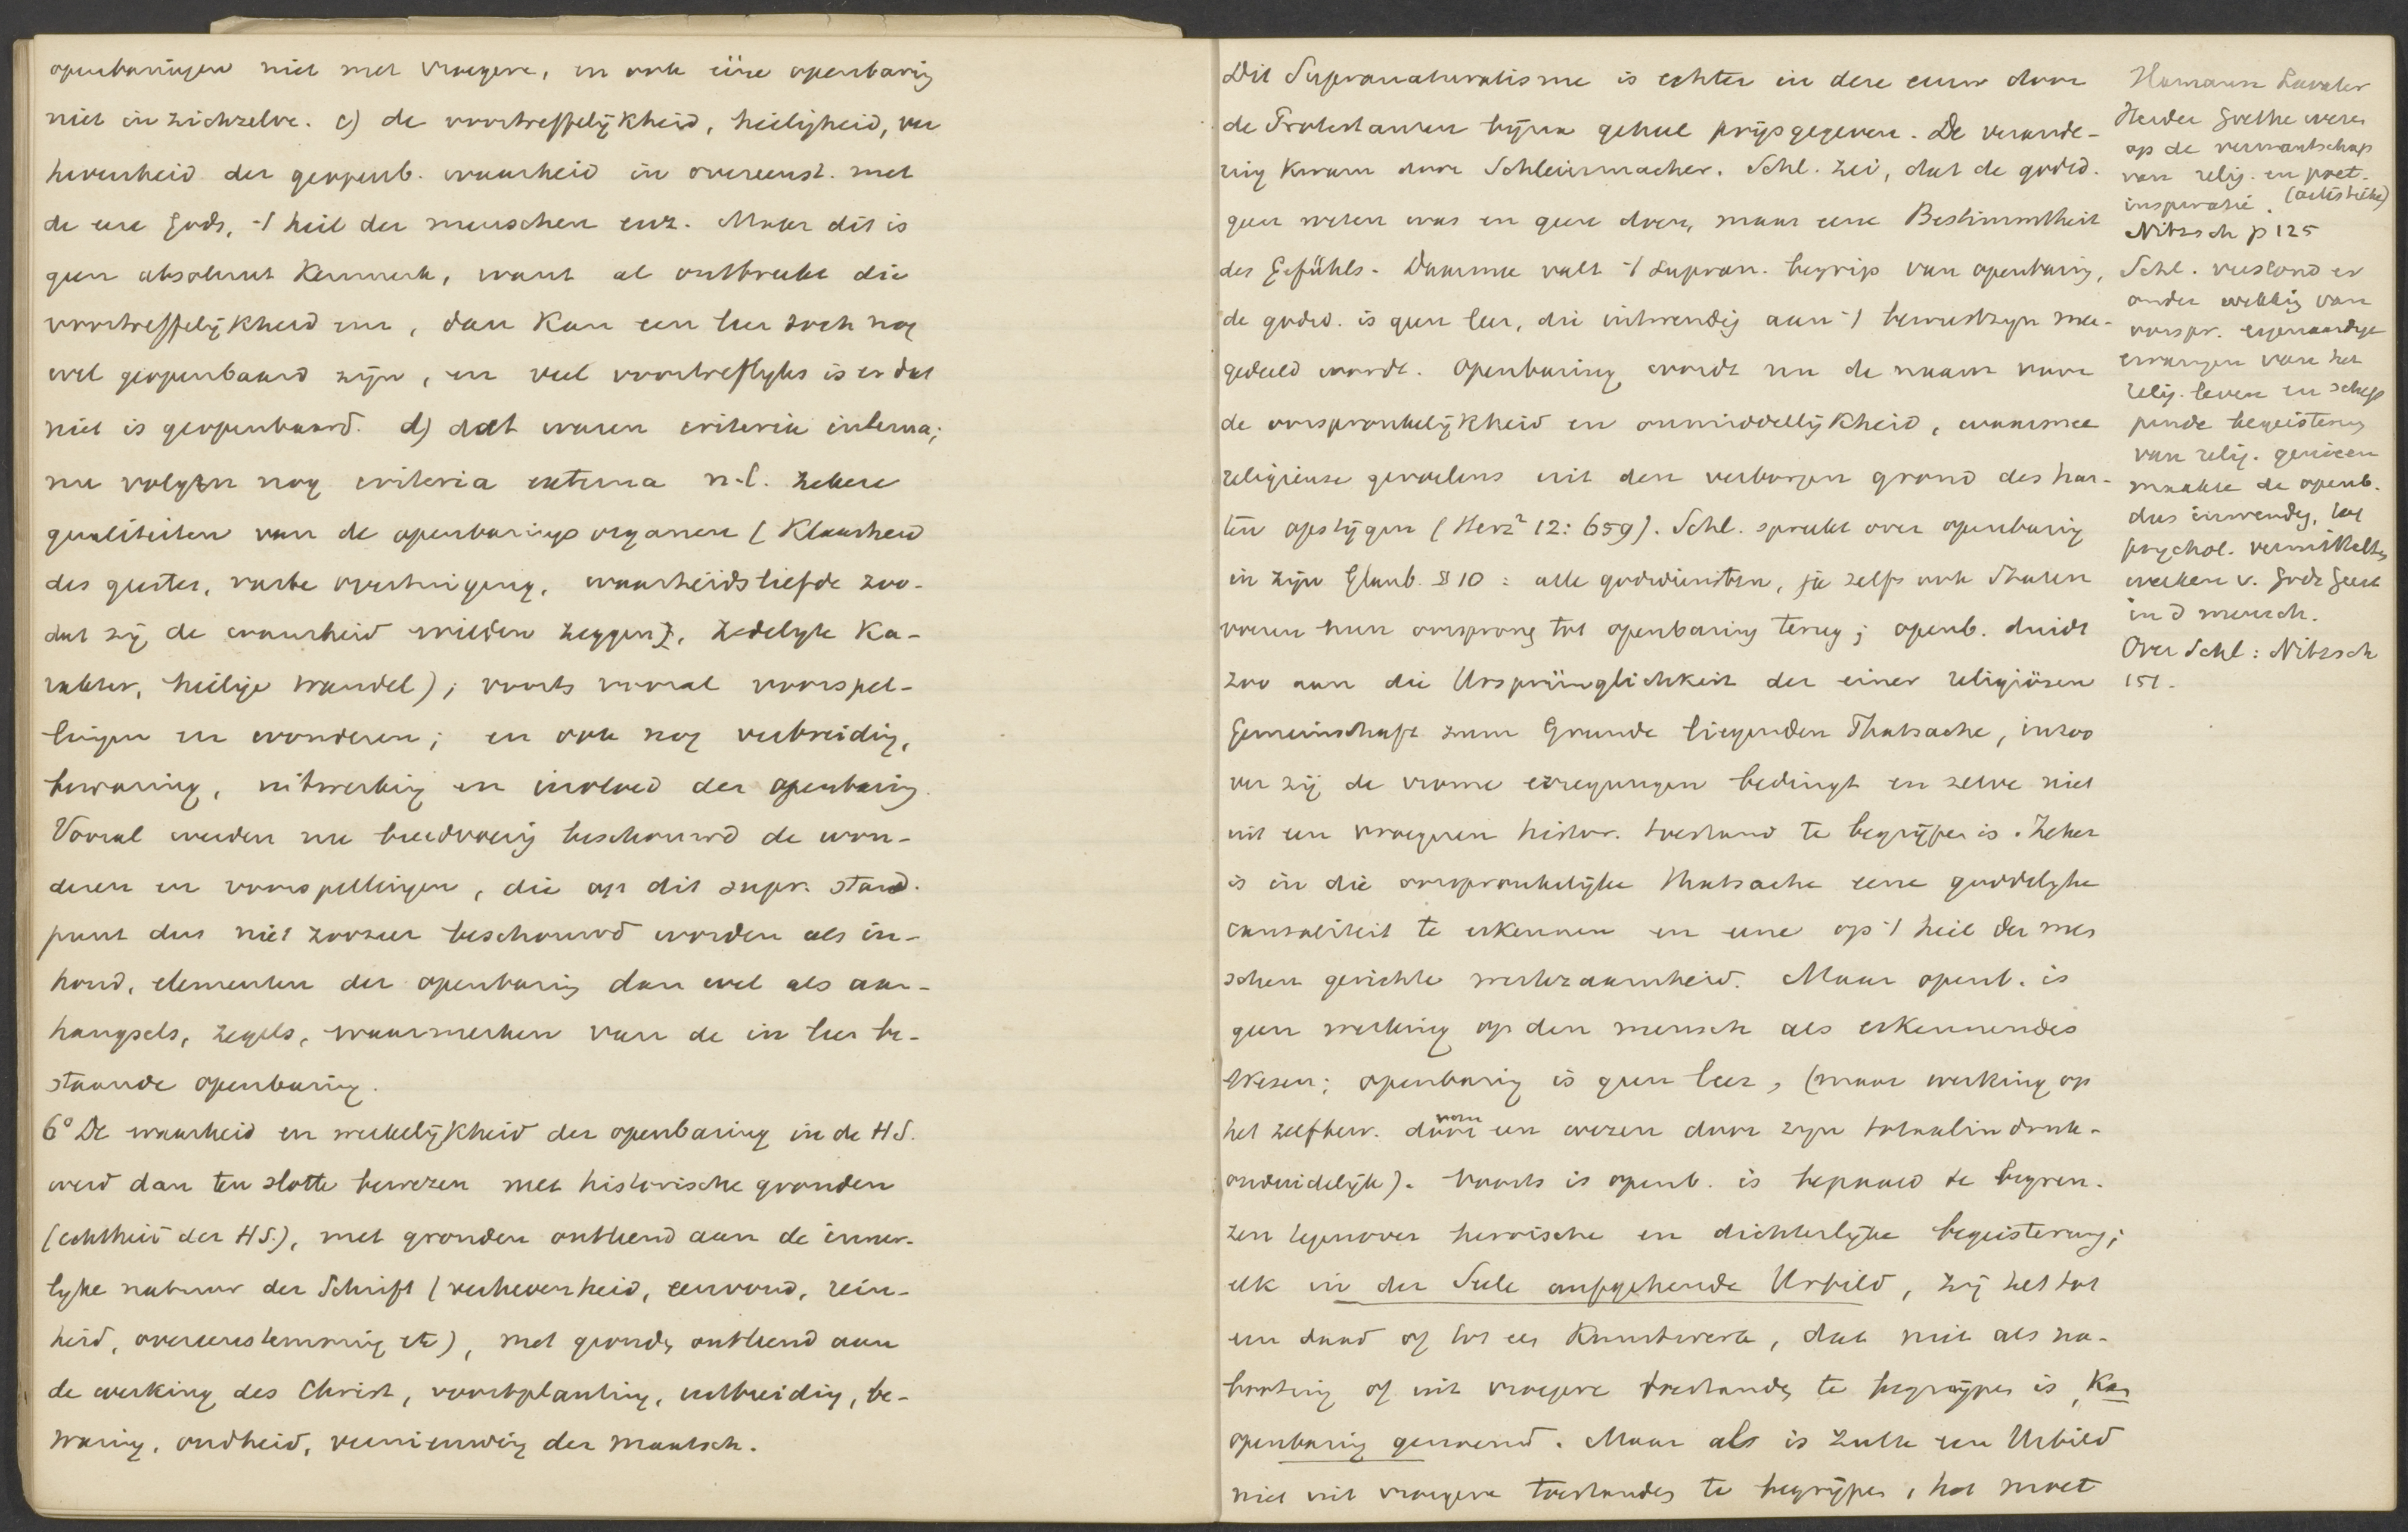 openbaringen niet met vroegere, en ook ééne openbaring
niet in zichzelve. c) de voortreffelijkheid, heiligheid, ver
hevenheid der geopenb. waarheid in overeenst. met
de eere Gods, 't heil der menschen enz. Maar dit is
geen absoluut Kenmerk, want al ontbreekt die
voortreffelijkheid nu, dan kan een leer toch nog
wel geopenbaard zijn, en veel voortreflyks is er dat
niet is geopenbaard. d) dat waren criteria interna;
nu volgen nog criteria externa n.l. zekere
qualiteiten van de openbaringsorganen (Klaarheid
des geestes, vaste overtuiging, waarheidsliefde zoo-
dat zij de waarheid wilden zeggen, zedelyk Ka-
rakter, heilige wandel); voorts vooral voorspel-
lingen en wonderen; en ook nog verbreiding,
bewaring, uitwerking en invloed der openbaring.
Vooral werden nu breedvoerig beschouwd de won-
deren en voorspellingen, die op dit supr. stand-
punt dus niet zoozeer beschouwd worden als in-
houd, elementen der openbaring dan wel als aan-
hangsels, zegels, waarmerken van de in leer be-
staande openbaring.
6° De waarheid en werkelijkheid der openbaring in de H S.
werd dan ten slotte bewezen met historische gronden
(echtheid der HS.), met gronden ontleend aan de inner-
lyke natuur der Schrift (verhevenheid, eenvoud, rein-
heid, overeenstemming etc), met gronden ontleend aan
de werking des Christ, voortplanting, uitbreiding, be-
waring, oudheid, vernieuwing der maatsch.
Dit Supranaturalisme is echter in deze eeuw door
de Protestanten bijna geheel prijsgegeven. De verande-
ring kwam door Schleiermacher. Schl. zei, dat de godsd.
geen weten was en geen doen, maar eene Bestimmtheit
des Gefühls. Daarmee valt 't supran. begrip van openbaring,
de godsd. is geen leer, die inwendig aan 't bewustzyn mee-
gedeeld wordt. Openbaring wordt nu de naam voor
de oorspronkelijkheid en onmiddellijkheid, waarmee
religieuse gevoelens uit den verborgen grond des har-
ten opstijgen (Herz² 12: 659). Schl. spreekt over openbaring
in zijn Glaub. § 10: alle godsdiensten, ja zelfs ook Staten
voeren hun oorsprong tot openbaring terug; openb. duidt
zoo aan die Ursprünglichkeit der einer religiösen
Gemeinschaft zum Grunde liegenden Thatsache, inzoo
ver zij de vrome erregungen bedingt en zelve niet
uit een vroegeren histor. toestand te begrijpen is. Zeker
is in die oorspronkelijke thatsache eene goddelyke
causaliteit te erkennen en eene op 't heil der men
schen gerichte werkzaamheid. Maar openb. is
geen werking op den mensch als erkennendes
Wesen; openbaring is geen leer, (maar werking op
het zelfbew. voor een wezen door zyn totaalindruk-
onduidelijk). Voorts is openb. is bepaald te begren-
zen tegenover heroische en dichterlijke begeisterung;
elk in der Seele aufgehende Urbild, zij het tot
een daad of tot een Kunstwerk, dat niet als na-
bootsing of uit vroegere toestanden te begrijpen is, kan
openbaring genoemd. Maar als is zulk een Urbild
niet uit vroegere toestanden te begrijpen, het moet
Hamann Lavater
Herder Goethe wezen
op de verwantschap
van relig. en poet.
inspiratie. (aesthetische)
Nitzsch p 125
Schl. verstond er
onder wekking van
oorspr. eigenaardige
ervaringen van het
relig. leven en schep
pende begeistering
van relig. genieen
maakte de openb.
dus inwendig, tot
psychol. vermitteltes
werken v. Gods Geest
in d mensch.
Over Schl: Nitzsch
151.